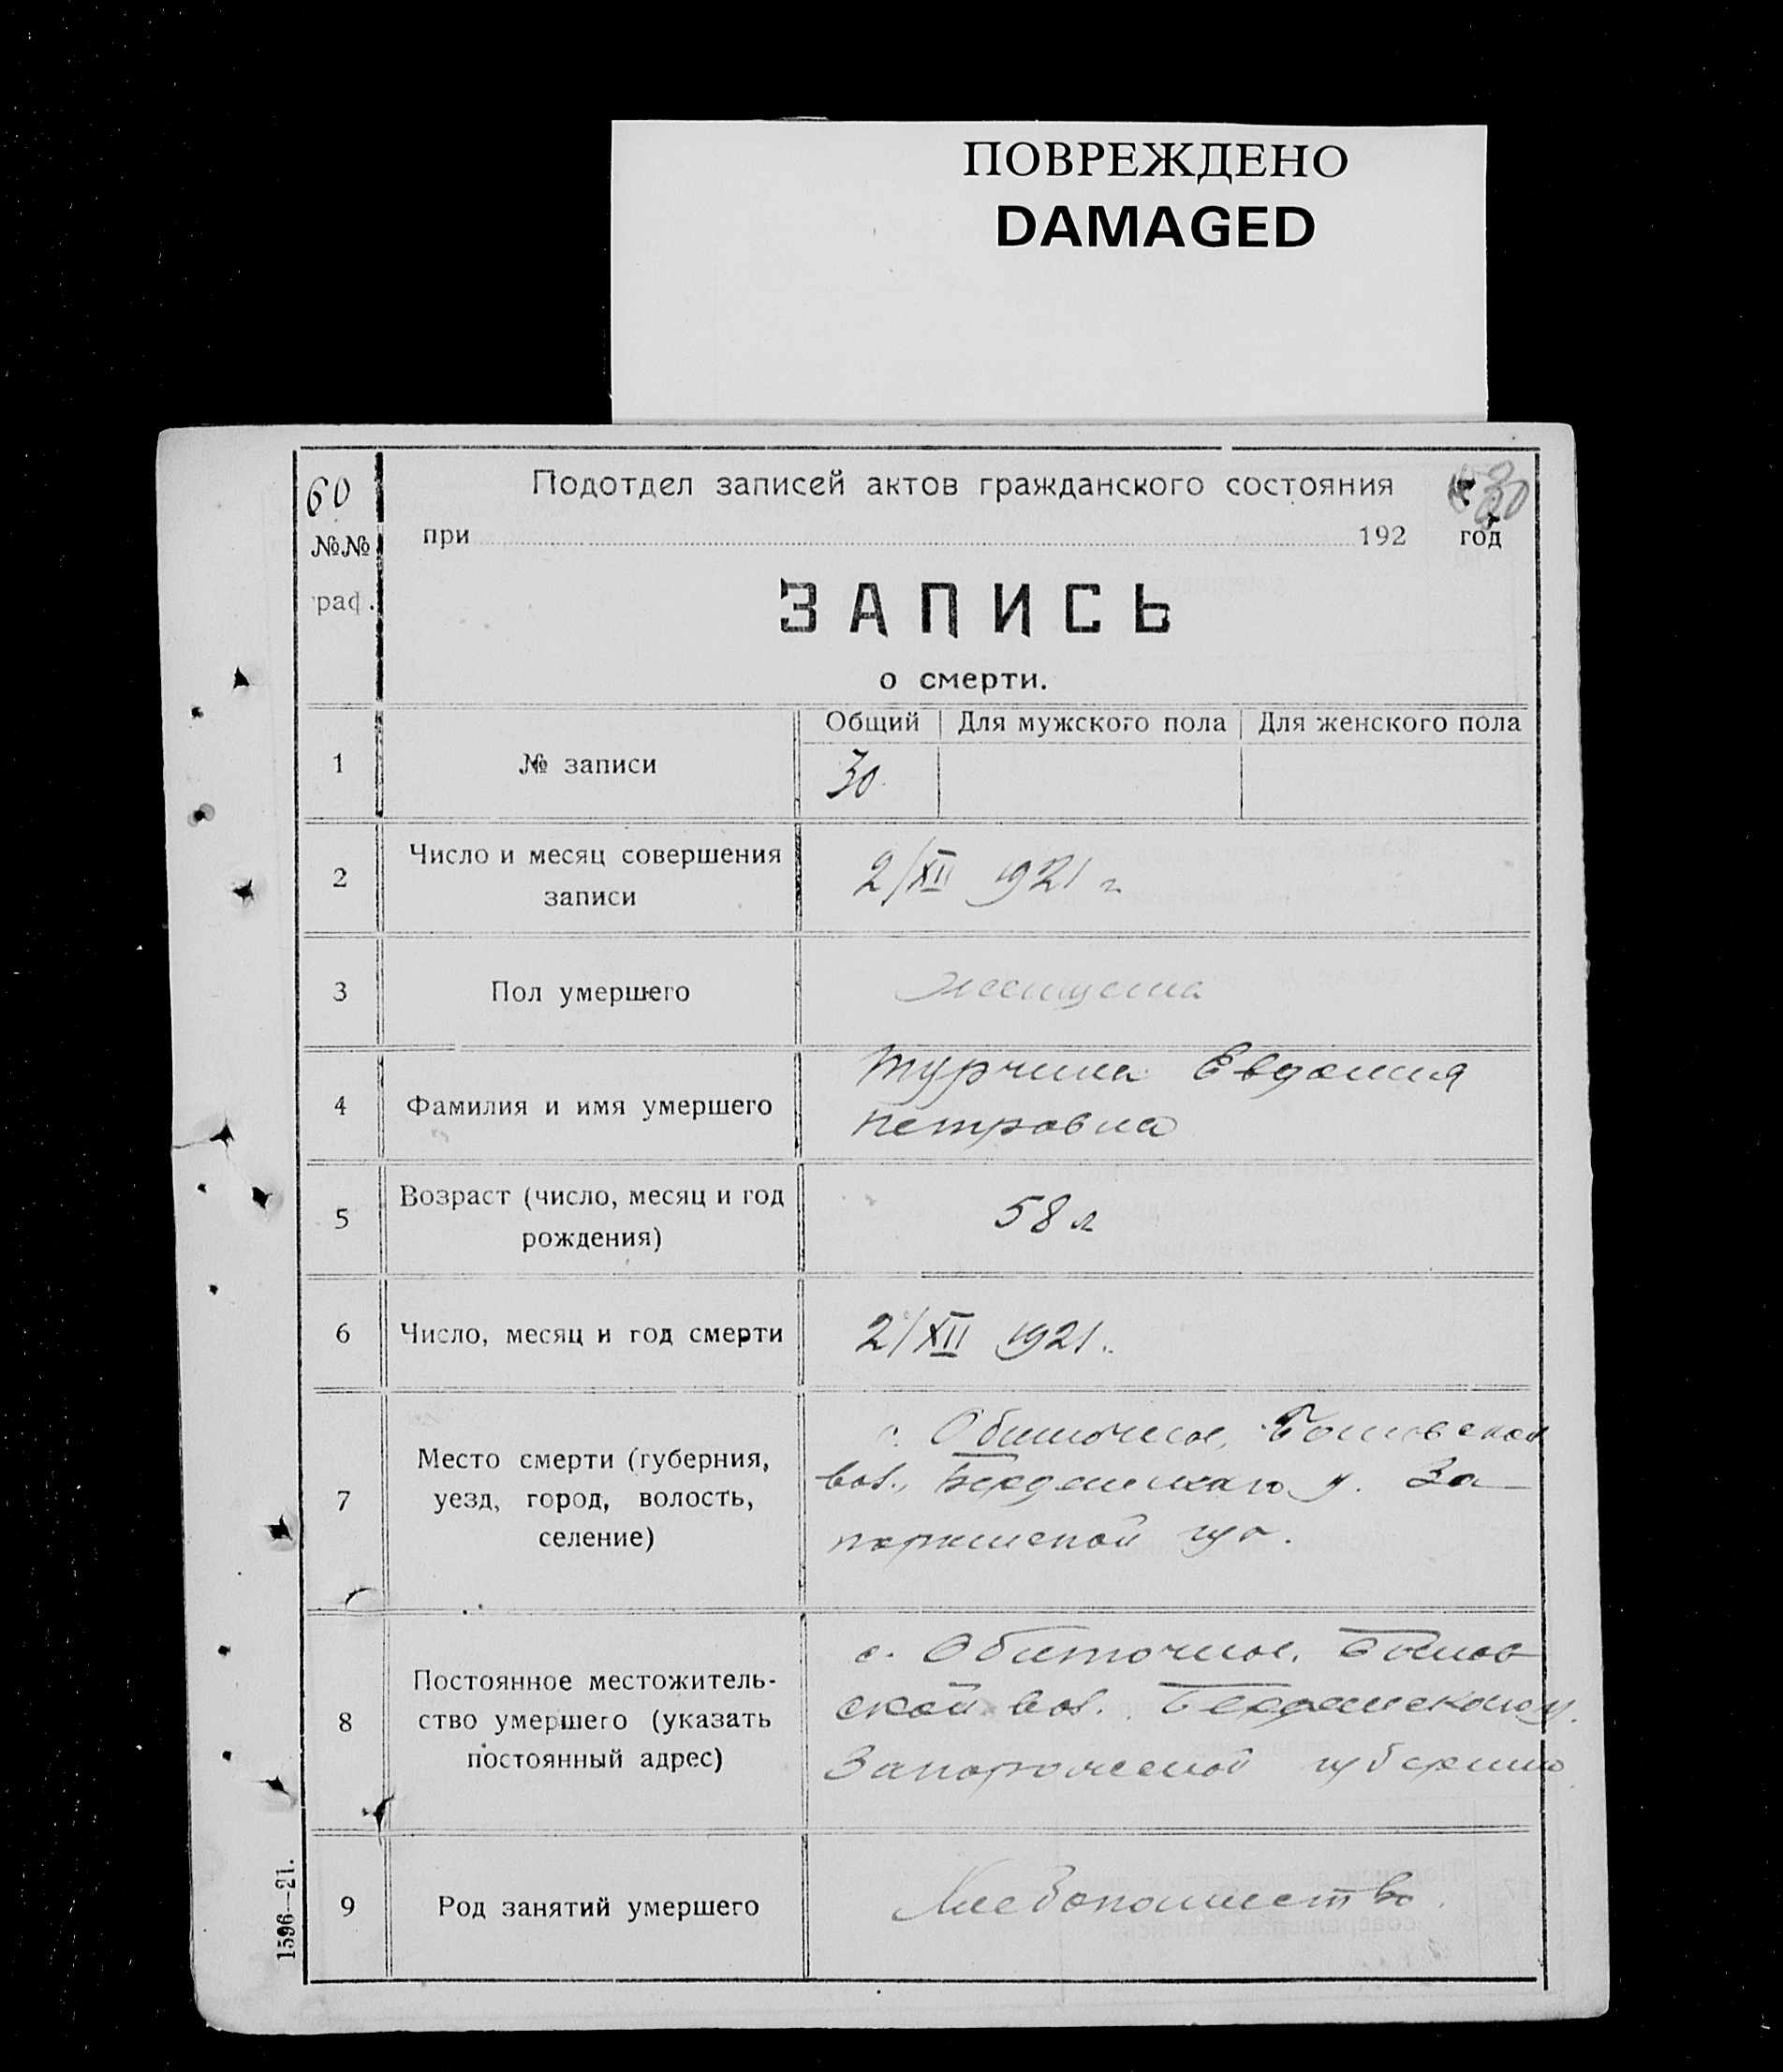 ПОВРЕЖДЕНО
DAMAGED
60
Подотдел записей актов гражданского состояния
№№ при 192 год
граф.
ЗАПИСЬ
о смерти.
Общий Для мужского пола Для женского пола
1 № записи 30
2 Число и месяц совершения
записи 2/XII 1921 г
3 Пол умершего женщина
4 Фамилия и имя умершего Турчина Евдокия
Петровна
5 Возраст (число, месяц и год
рождения) 58 л
6 Число, месяц и год смерти 2/XII 1921.
7 Место смерти (губерния,
уезд, город, волость,
селение)
с. Обиточное,
вол., Бердянского у. За
порожской губ.
8 Постоянное местожитель-
ство умершего (указать
постоянный адрес)
с. Обиточное,
ской вол. Бердянского у.
Запорожской губернии
9 Род занятий умершего Хлебопашество.
1596—21.